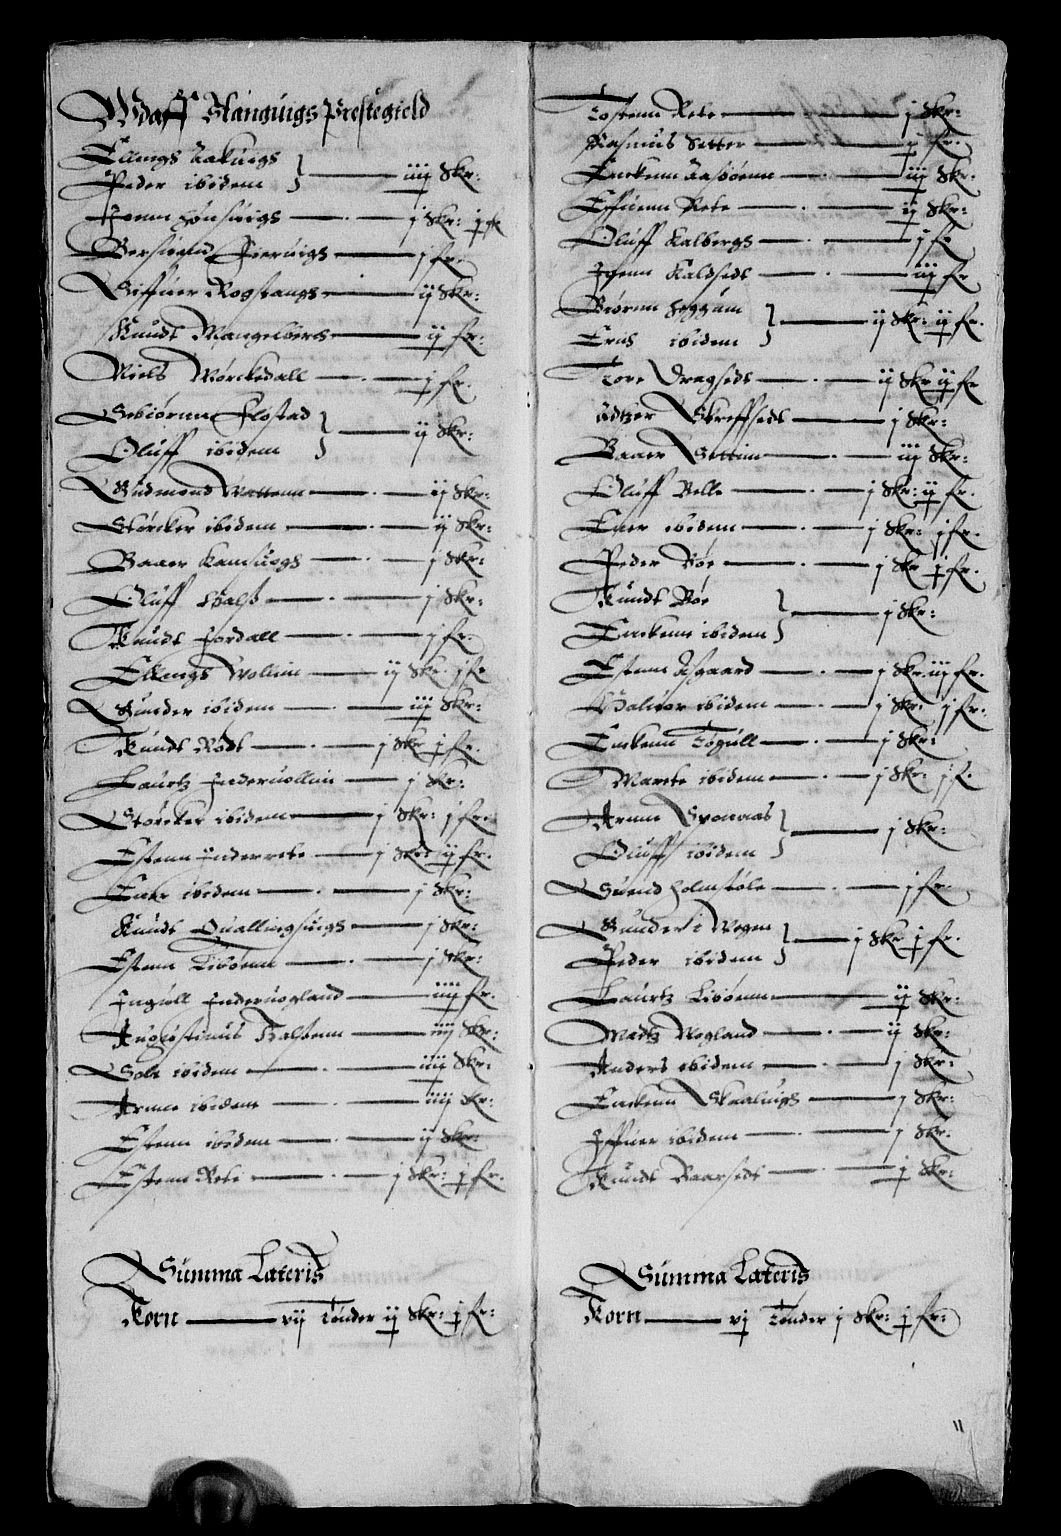 Wdaff Stanguigs Prestegield
Ellings Aakuigs
Peder ibidem } iiij Skr:
Joenn Hønsuigs j Skr: j fr
Bersuend Gieruigs j fr.
Siffuer Rogstangs ij Skr:
Knudt Mangelbers ij fr.
Niels Wørckedall j fr.
Sebiørnn Flostad
Oluff ibidem } ij Skr:
Gudmond Wattenn ij Skr:
Størcker ibidem ij Skr:
Baaer Kamsuogs j Skr:
Oluff Wals j Skr:
Knudt Hordall j fr.
Ellings Wollnn ij Skr j fr
Gunder ibidem iij Skr:
Knudt Rødt j Skr j fr.
Laurtz Inderuollnn j Skr:
Størcker ibidem j Skr: j fr.
Estenn Inderrete j Skr: ij fr.
Euer ibidem j Skr:
Knudt Quallingsuigs j Skr:
Estenn Tibøenn j Skr:
Inguell Inderuogland iiij fr.
Augustinus Talstenn iiij Skr:
Sole ibidem iiiij Skr:
Arnne ibidem iiij Skr:
Estenn ibidem ij Skr:
Estenn Rete j Skr: j fr.
Summa Lateris
Korn vij Tønder ij Skr: j fr:
Tostenn Rete j Skr:
Rasmus Setter j fr.
Enckenn Aasbøenn iij Skr.
Effuenn Rete ij Skr:
Oluff Kalbergs j fr
Joenn Kaldseds iij fr
Biørnn Heggum
Erus ibidem } ij Skr: ij fr.
Tore Dragseds ij Skr ij fr
Adtzer Skreffseds j Skr:
Baaer Settnn iij Skr:
Oluff Velle j Skr: ij fr.
Euer ibidem j Skr: j fr.
Peder Bøe j Skr j fr.
Knudt Bøe
Enckenn ibidem } j Skr:
Estenn Asgaard j Skr iij fr.
Haluor ibidem j Skr: j fr.
Enckenn Togull j Skr:
Marete ibidem j Skr: j f.
Arnne Suonaas
Oluff ibidem } j Skr:
Suend Holmstøle j fr.
Gunder i Wegen
Peder ibidem } j Skr j fr.
Laurtz Libøenn ij Skr:
Madtz Wogland ij Skr:
Anders ibidem j Skr:
Enckenn Skaaluigs j Skr:
Iffuer ibidem j Skr:
Knudt Baarsedt j Skr:
Summa Lateris
Korn vj Tønder j Skr: j fr:
11